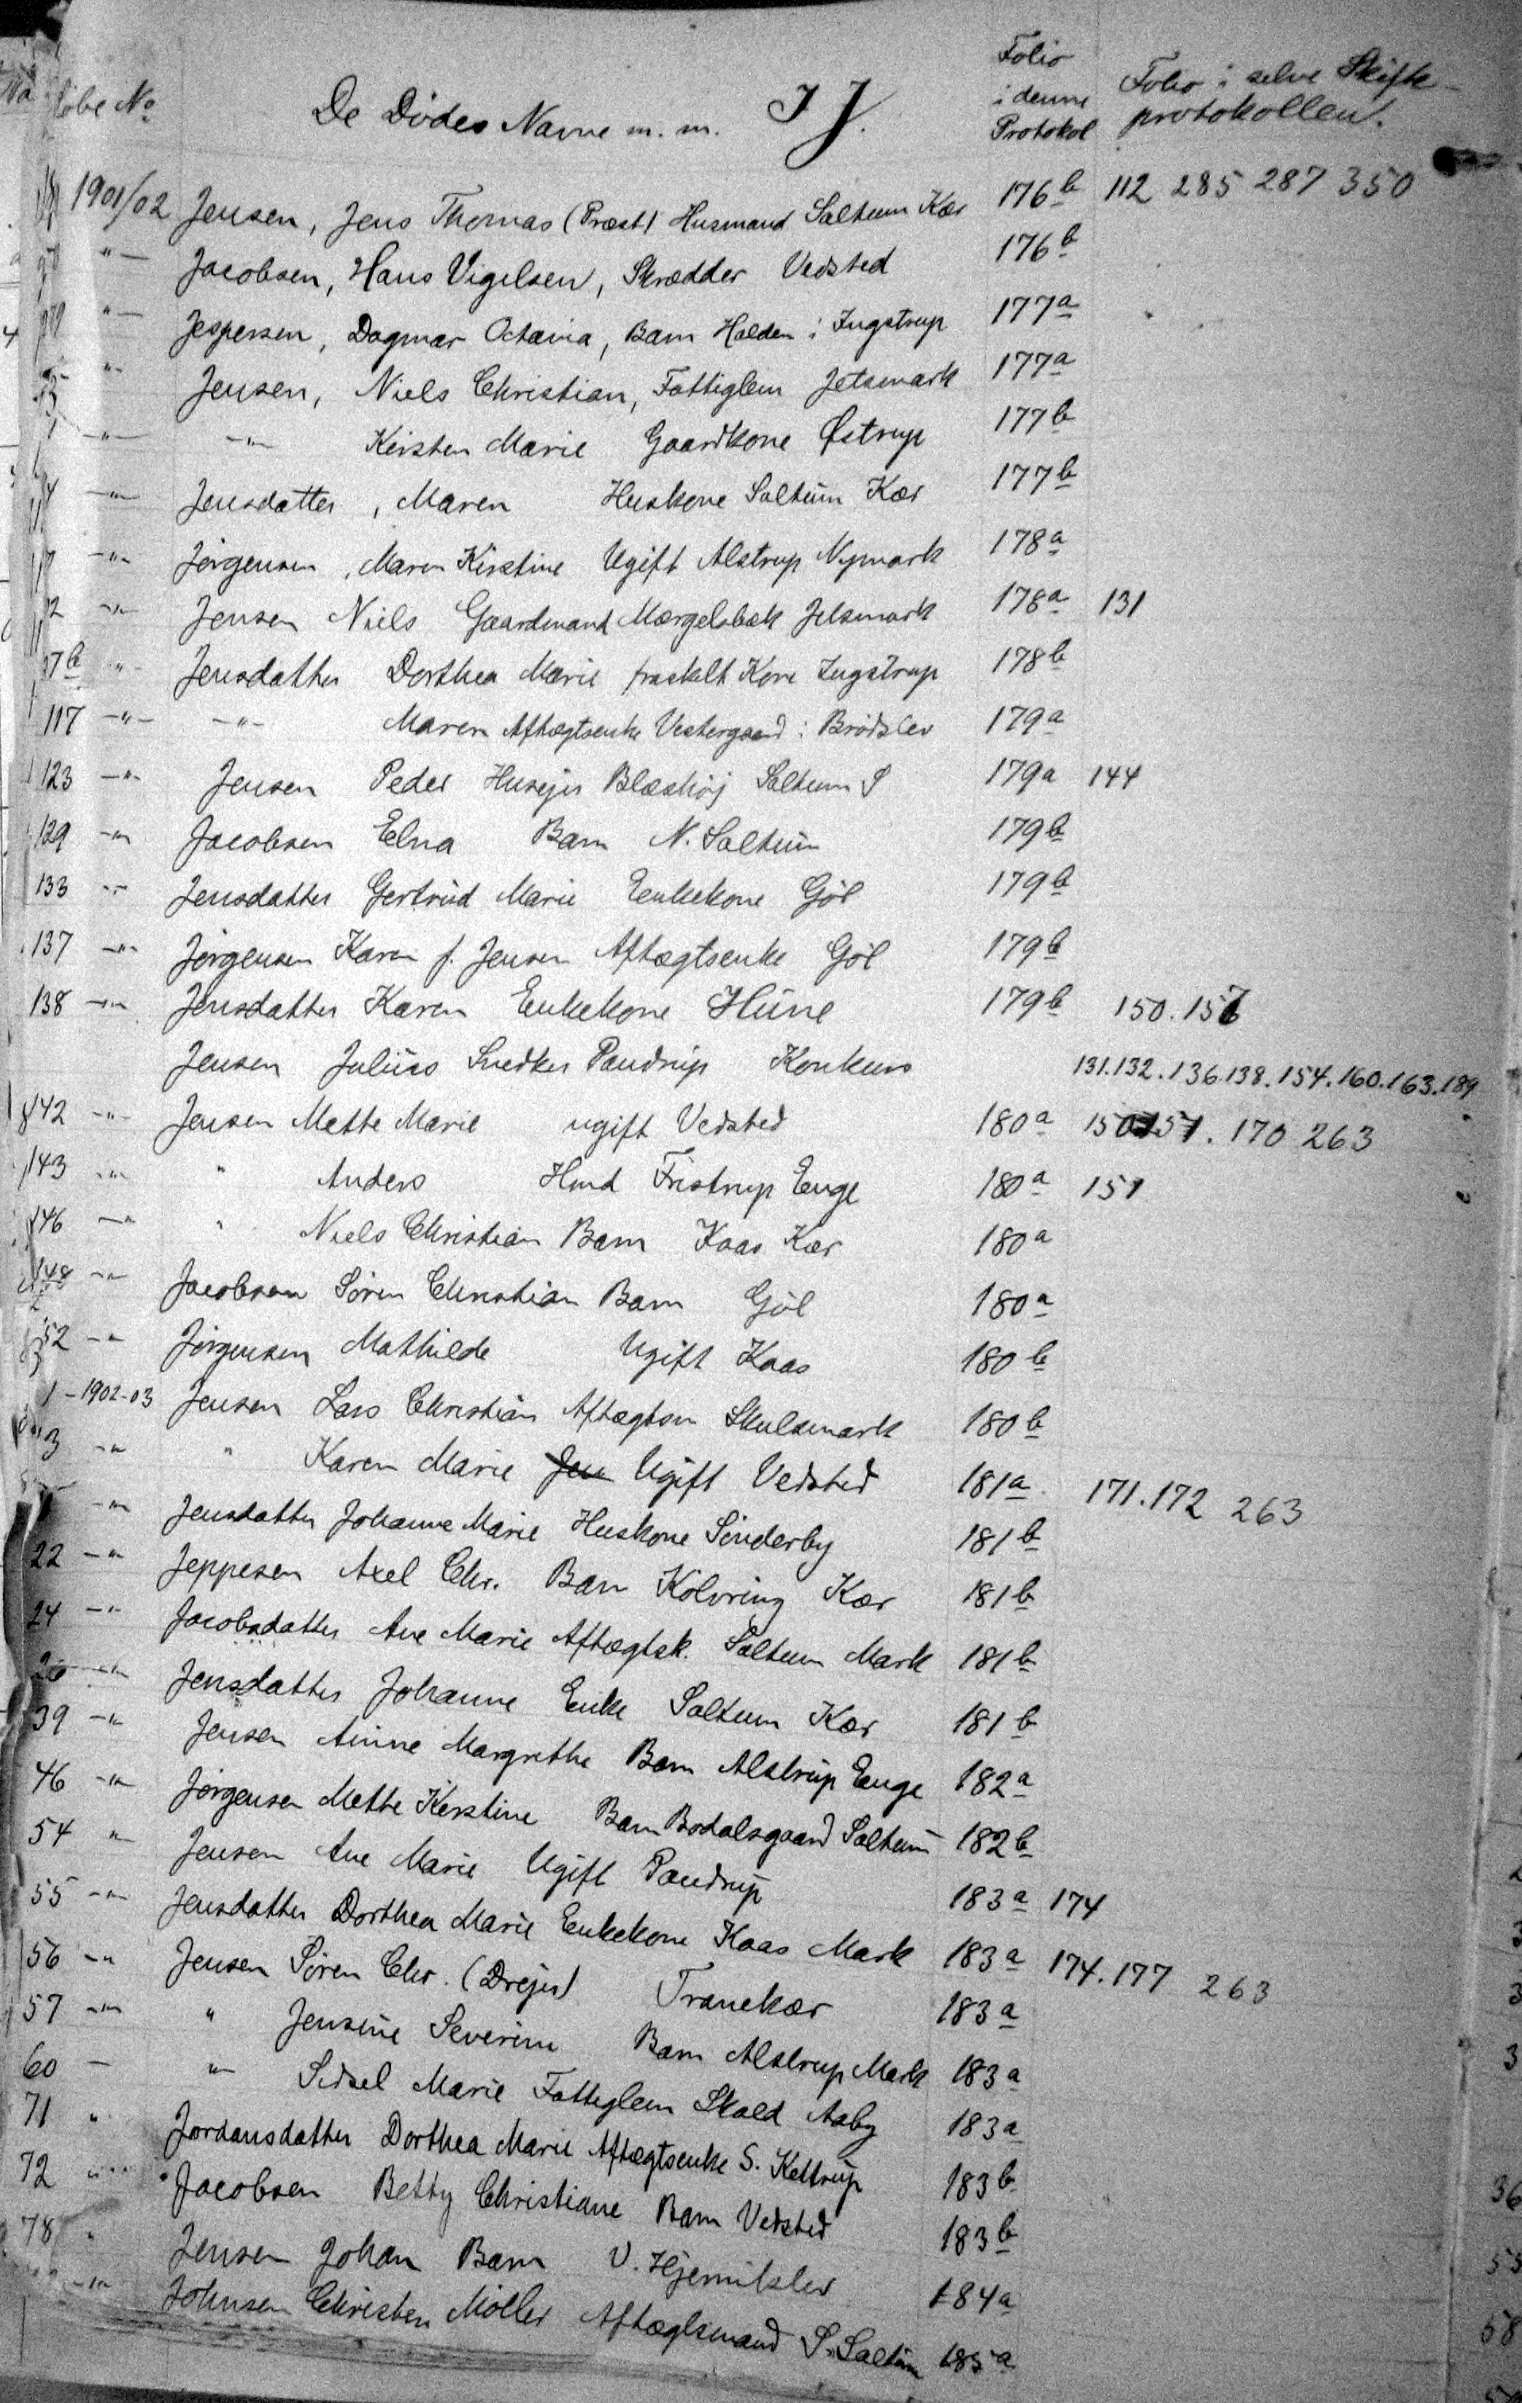 Løbe No De Dødes Navne m. m. I J. Folio i denne Protokol Folio i selve Skifteprotokollen.
1901/02 Jensen, Jens Thomas (Præst) Husmand Saltum Kær 176b 112 285 287 350
"— Jacobsen, Hans Vigelsen, Skrædder Vedsted 176b
"— Jespersen, Dagmar Octavia, Barn Halden i Ingstrup 177a
" Jensen, Niels Christian, Fattiglem Jetsmark 177a
-"- -"- Kirsten Marie Gaardkone Østrup 177b
-"- Jensdatter, Maren Huskone Saltum Kær 177b
-"- Jørgensen, Maren Kirstine Ugift Alstrup Nymark 178a
-"- Jensen Niels Gaardmand Mærgelsbæk Jetsmark 178a 131
7b "- Jensdatter Dorthea Marie fraskilt Kone Ingstrup 178b
117 -"- -"- Maren Aftægtsenke Vestergaard i Brødslev 179a
123 -"- Jensen Peder Husejer Blæshøj Saltum S 179a 144
129 -"- Jacobsen Elna Barn N. Saltum 179b
133 -"- Jensdatter Gertrud Marie Enkekone Gjøl 179b
137 -"- Jørgensen Karen f. Jensen Aftægtsenke Gjøl 179b
138 -"- Jensdatter Karen Enkekone Hune 179b 150.157
Jensen Julius Snedker Pandrup Konkurs 131.132.136.138.154.160.163.189
142 -"- Jensen Mette Marie ugift Vedsted 180a 150 151. 170 263
143 -"- " Anders Hmd Fristrup Enge 180a 151
146 -"- " Niels Christian Barn Kaas Kær 180a
148 -"- Jacobsen Søren Christian Barn Gjøl 180a
152 -"- Jørgensen Mathilde Ugift Kaas 180b
1 - 1902-03 Jensen Lars Christian Aftægtsm Skulsmark 180b
3 -"- " Karen Marie Jen Ugift Vedsted 181a 171.172 263
-"- Jensdatter Johanne Marie Huskone Sønderby 181b
22 -"- Jeppesen Axel Chr. Barn Kolvring Kær 181b
24 -"- Jacobsdatter Ane Marie Aftægtsk. Saltum Mark 181b
26 -"- Jensdatter Johanne Enke Saltum Kær 181b
39 -"- Jensen Anine Margrethe Barn Alstrup Enge 182a
46 -"- Jørgensen Mette Kirstine Barn Bodalsgaard Saltum 182b
54 " Jensen Ane Marie Ugift Pandrup 183a 174
55 -"- Jensdatter Dorthea Marie Enkekone Kaas Mark 183a 174.177 263
56 -"- Jensen Søren Chr. (Drejer) Tranekær 183a
57 -"- " Jensine Severine Barn Alstrup Mark 183a
60 — " Sidsel Marie Fattiglem Skald Aaby 183a
71 " Jordansdatter Dorthea Marie Aftægtsenke S. Kettrup 183b
72 " Jacobsen Betty Christiane Barn Vedsted 183b
78 " Jensen Johan Barn V. Hjermitslev 184a
-"- Johnsen Christen Møller Aftægtsmand S. Saltum 185a